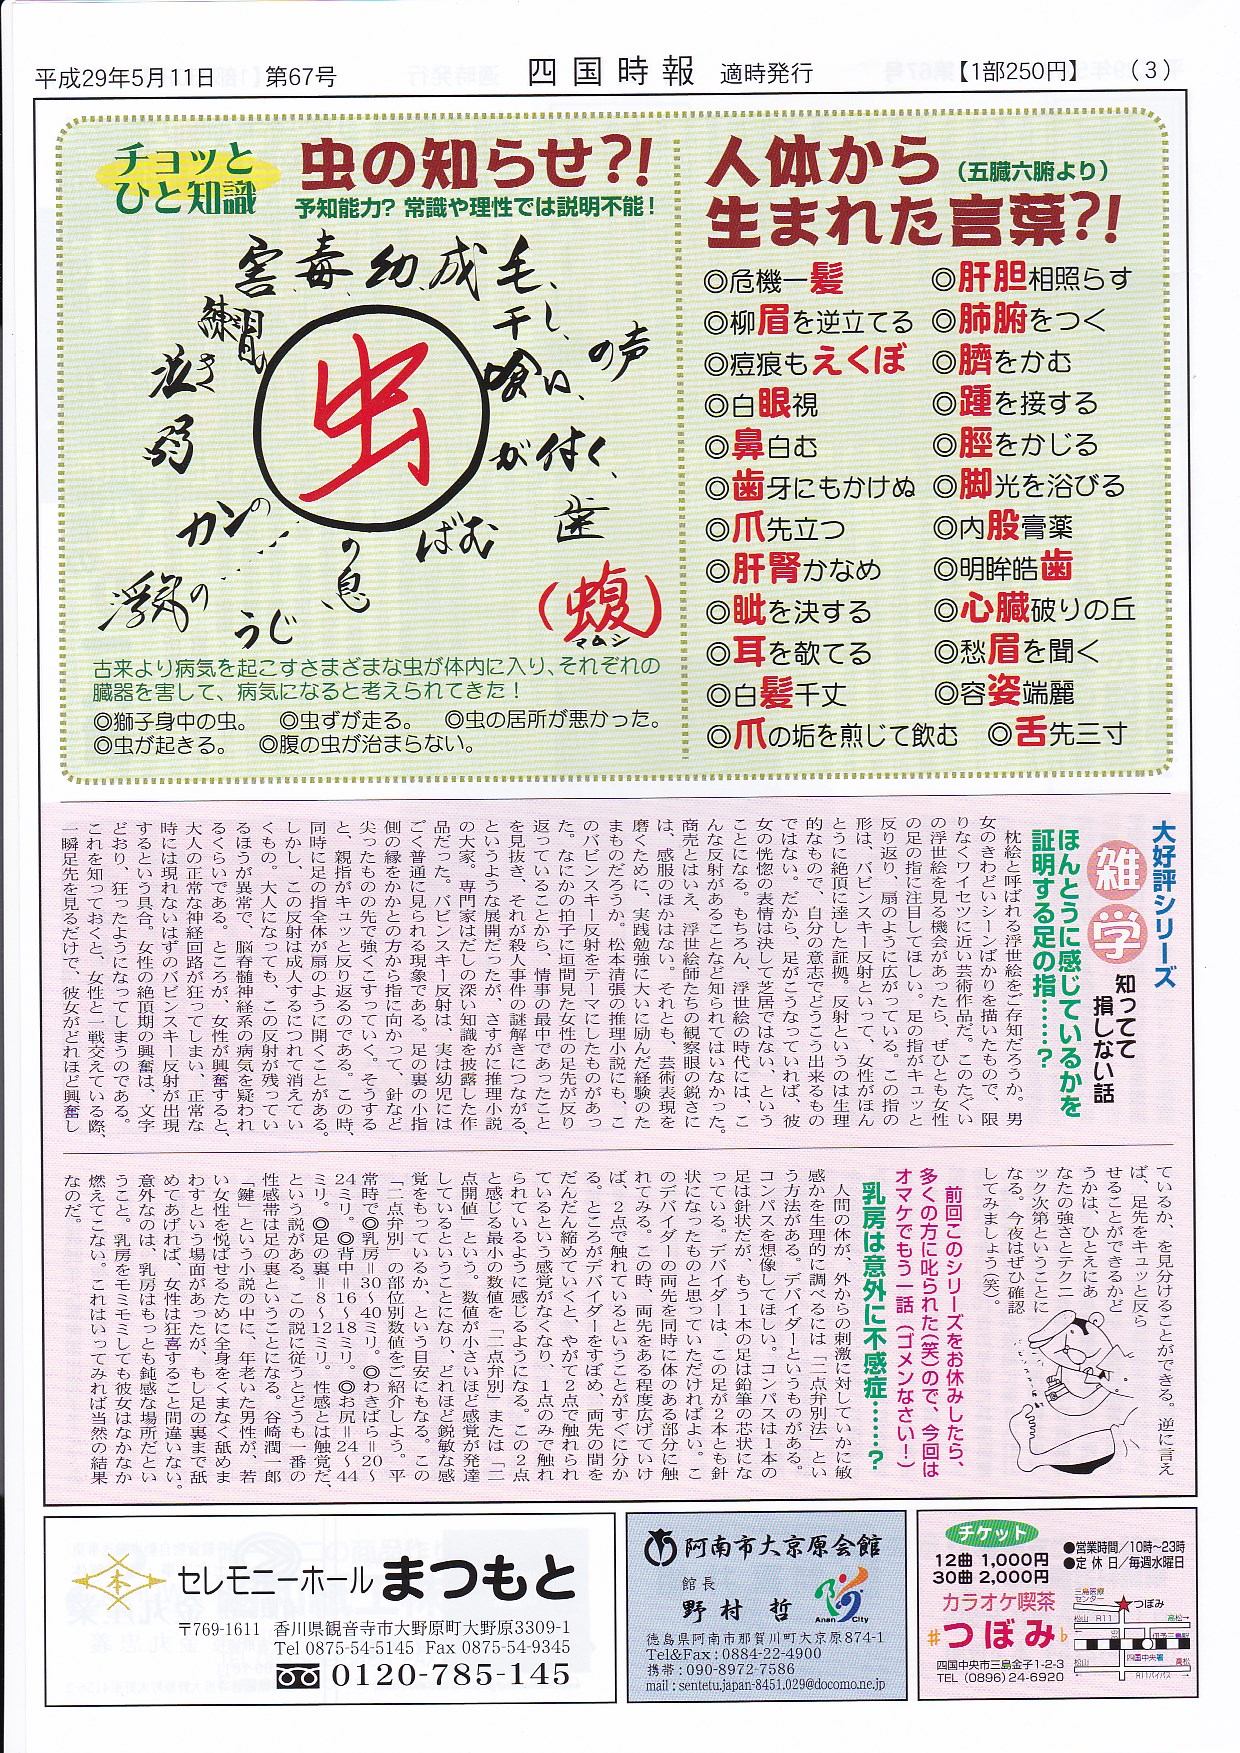 平成29年5月11日 第67号 四国時報 適時発行 【1部250円】 (3)
チョッと
ひと知識
虫の知らせ?!
予知能力? 常識や理性では説明不能!
害、毒、幼、成、毛、
干し、
喰い、
の声
が付く、
歯
ばむ
の息
うじ
浮気の
カンの
弱
泣き
練習
虫
(蝮)
マムシ
古来より病気を起こすさまざまな虫が体内に入り、それぞれの
臓器を害して、病気になると考えられてきた!
◎獅子身中の虫。 ◎虫ずが走る。 ◎虫の居所が悪かった。
◎虫が起きる。 ◎腹の虫が治まらない。
人体から(五臓六腑より)
生まれた言葉?!
◎危機一髪
◎柳眉を逆立てる
◎痘痕もえくぼ
◎白眼視
◎鼻白む
◎歯牙にもかけぬ
◎爪先立つ
◎肝腎かなめ
◎眦を決する
◎耳を欹てる
◎白髪千丈
◎爪の垢を煎じて飲む
◎肝胆相照らす
◎肺腑をつく
◎臍をかむ
◎踵を接する
◎脛をかじる
◎脚光を浴びる
◎内股膏薬
◎明眸皓歯
◎心臓破りの丘
◎愁眉を聞く
◎容姿端麗
◎舌先三寸
大好評シリーズ
雑学
知ってて
損しない話
ほんとうに感じているかを
証明する足の指……?
枕絵と呼ばれる浮世絵をご存知だろうか。男
女のきわどいシーンばかりを描いたもので、限
りなくワイセツに近い芸術作品だ。このたぐい
の浮世絵を見る機会があったら、ぜひとも女性
の足の指に注目してほしい。足の指がキュッと
反り返り、扇のように広がっている。この指の
形は、バビンスキー反射といって、女性がほん
とうに絶頂に達した証拠。反射というのは生理
的なもので、自分の意志でどうこう出来るもの
ではない。だから、足がこうなっていれば、彼
女の恍惚の表情は決して芝居ではない、という
ことになる。もちろん、浮世絵の時代には、こ
んな反射があることなど知られてはいなかった。
商売とはいえ、浮世絵師たちの観察眼の鋭さに
は、感服のほかはない。それとも、芸術表現を
磨くために、実践勉強に大いに励んだ経験のた
まものだろうか。松本清張の推理小説にも、こ
のバビンスキー反射をテーマにしたものがあっ
た。なにかの拍子に垣間見た女性の足先が反り
返っていることから、情事の最中であったこと
を見抜き、それが殺人事件の謎解きにつながる、
というような展開だったが、さすがに推理小説
の大家。専門家はだしの深い知識を披露した作
品だった。バビンスキー反射は、実は幼児には
ごく普通に見られる現象である。足の裏の小指
側の縁をかかとの方から指に向かって、針など
尖ったものの先で強くこすっていく。そうする
と、親指がキュッと反り返るのである。この時、
同時に足の指全体が扇のように開くことがある。
しかし、この反射は成人するにつれて消えてい
くもの。大人になっても、この反射が残ってい
るほうが異常で、脳脊髄神経系の病気を疑われ
るくらいである。ところが、女性が興奮すると、
大人の正常な神経回路が狂ってしまい、正常な
時には現れないはずのバビンスキー反射が出現
するという具合。女性の絶頂期の興奮は、文字
どおり、狂ったようになってしまうのである。
これを知っておくと、女性と一戦交えている際、
一瞬足先を見るだけで、彼女がどれほど興奮し
ているか、を見分けることができる。逆に言え
ば、足先をキュッと反ら
せることができるかど
うかは、ひとえにあ
なたの強さとテクニ
ック次第ということに
なる。今夜はぜひ確認
してみましょう(笑)。
前回このシリーズをお休みしたら、
多くの方に叱られた(笑)ので、今回は
オマケでもう一話(ゴメンなさい!)
乳房は意外に不感症……?
人間の体が、外からの刺激に対していかに敏
感かを生理的に調べるには「二点弁別法」とい
う方法がある。デバイダーというものがある。
コンパスを想像してほしい。コンパスは1本の
足は針状だが、もう1本の足は鉛筆の芯状にな
っている。デバイダーは、この足が2本とも針
状になったものと思っていただければよい。こ
のデバイダーの両先を同時に体のある部分に触
れてみる。この時、両先をある程度広げていけ
ば、2点で触れているということがすぐに分か
る。ところがデバイダーをすぼめ、両先の間を
だんだん縮めていくと、やがて2点で触れられ
ているという感覚がなくなり、1点のみで触れ
られているように感じるようになる。この2点
と感じる最小の数値を「二点弁別」または「二
点閾値」という。数値が小さいほど感覚が発達
しているということになり、どれほど鋭敏な感
覚をもっているか、という目安にもなる。この
「二点弁別」の部位別数値をご紹介しよう。平
常時で◎乳房=30~40ミリ。◎わきばら=20~
24ミリ。◎背中=16~18ミリ。◎お尻=24~44
ミリ。◎足の裏=8~12ミリ。性感とは触覚だ、
という説がある。この説に従うとどうも一番の
性感帯は足の裏ということになる。谷崎潤一郎
「鍵」という小説の中に、年老いた男性が、若
い女性を悦ばせるために全身をくまなく舐めま
わすという場面があったが、もし足の裏まで舐
めてあげれば、女性は狂喜すること間違いない。
意外なのは、乳房はもっとも鈍感な場所だとい
うこと。乳房をモミモミしても彼女はなかなか
燃えてこない。これはいってみれば当然の結果
なのだ。
本
セレモニーホール まつもと
〒769-1611 香川県観音寺市大野原町大野原3309-1
Tel 0875-54-5145 Fax 0875-54-9345
0120-785-145
阿南市大京原会館
館長
野村 哲
Anan City
徳島県阿南市那賀川町大京原874-1
Tel&Fax:0884-22-4900
携帯:090-8972-7586
mail:sentetu.japan-8451.029@docomo.ne.jp
チケット
12曲 1,000円
30曲 2,000円
●営業時間/10時~23時
●定休日/毎週水曜日
カラオケ喫茶
♯つぼみ♭
四国中央市三島金子1-2-3
TEL (0896)24-6920
三島医療
センター
つぼみ
松山 R11 高松
伊予三島駅
四国中央署
松山 R11バイパス 高松